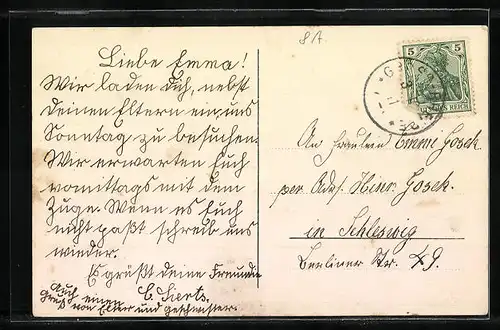 8A
Liebe Emma!
Wir laden dich, nebst
deinen Eltern ein, uns
Sonntag zu besuchen.
Wir erwarten Euch
vormittags mit dem
Zuge. Wenn es Euch
nicht paßt schreib uns
wieder.
Es grüßt deine Freundin
C. Sierts.
Auch einen
Gruß von Elter und geschwister.
5 5
DEUTSCHES REICH
An Fräulein Emmi Gosch
per Adr. Heinr. Gosch.
in Schleswig
Berliner Str. 49.